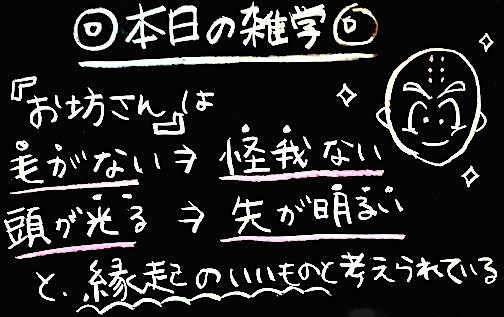 ◎本日の雑学◎
『お坊さん』は
毛がない⇒怪我ない
頭が光る⇒先が明るい
と、縁起のいいものと考えられている